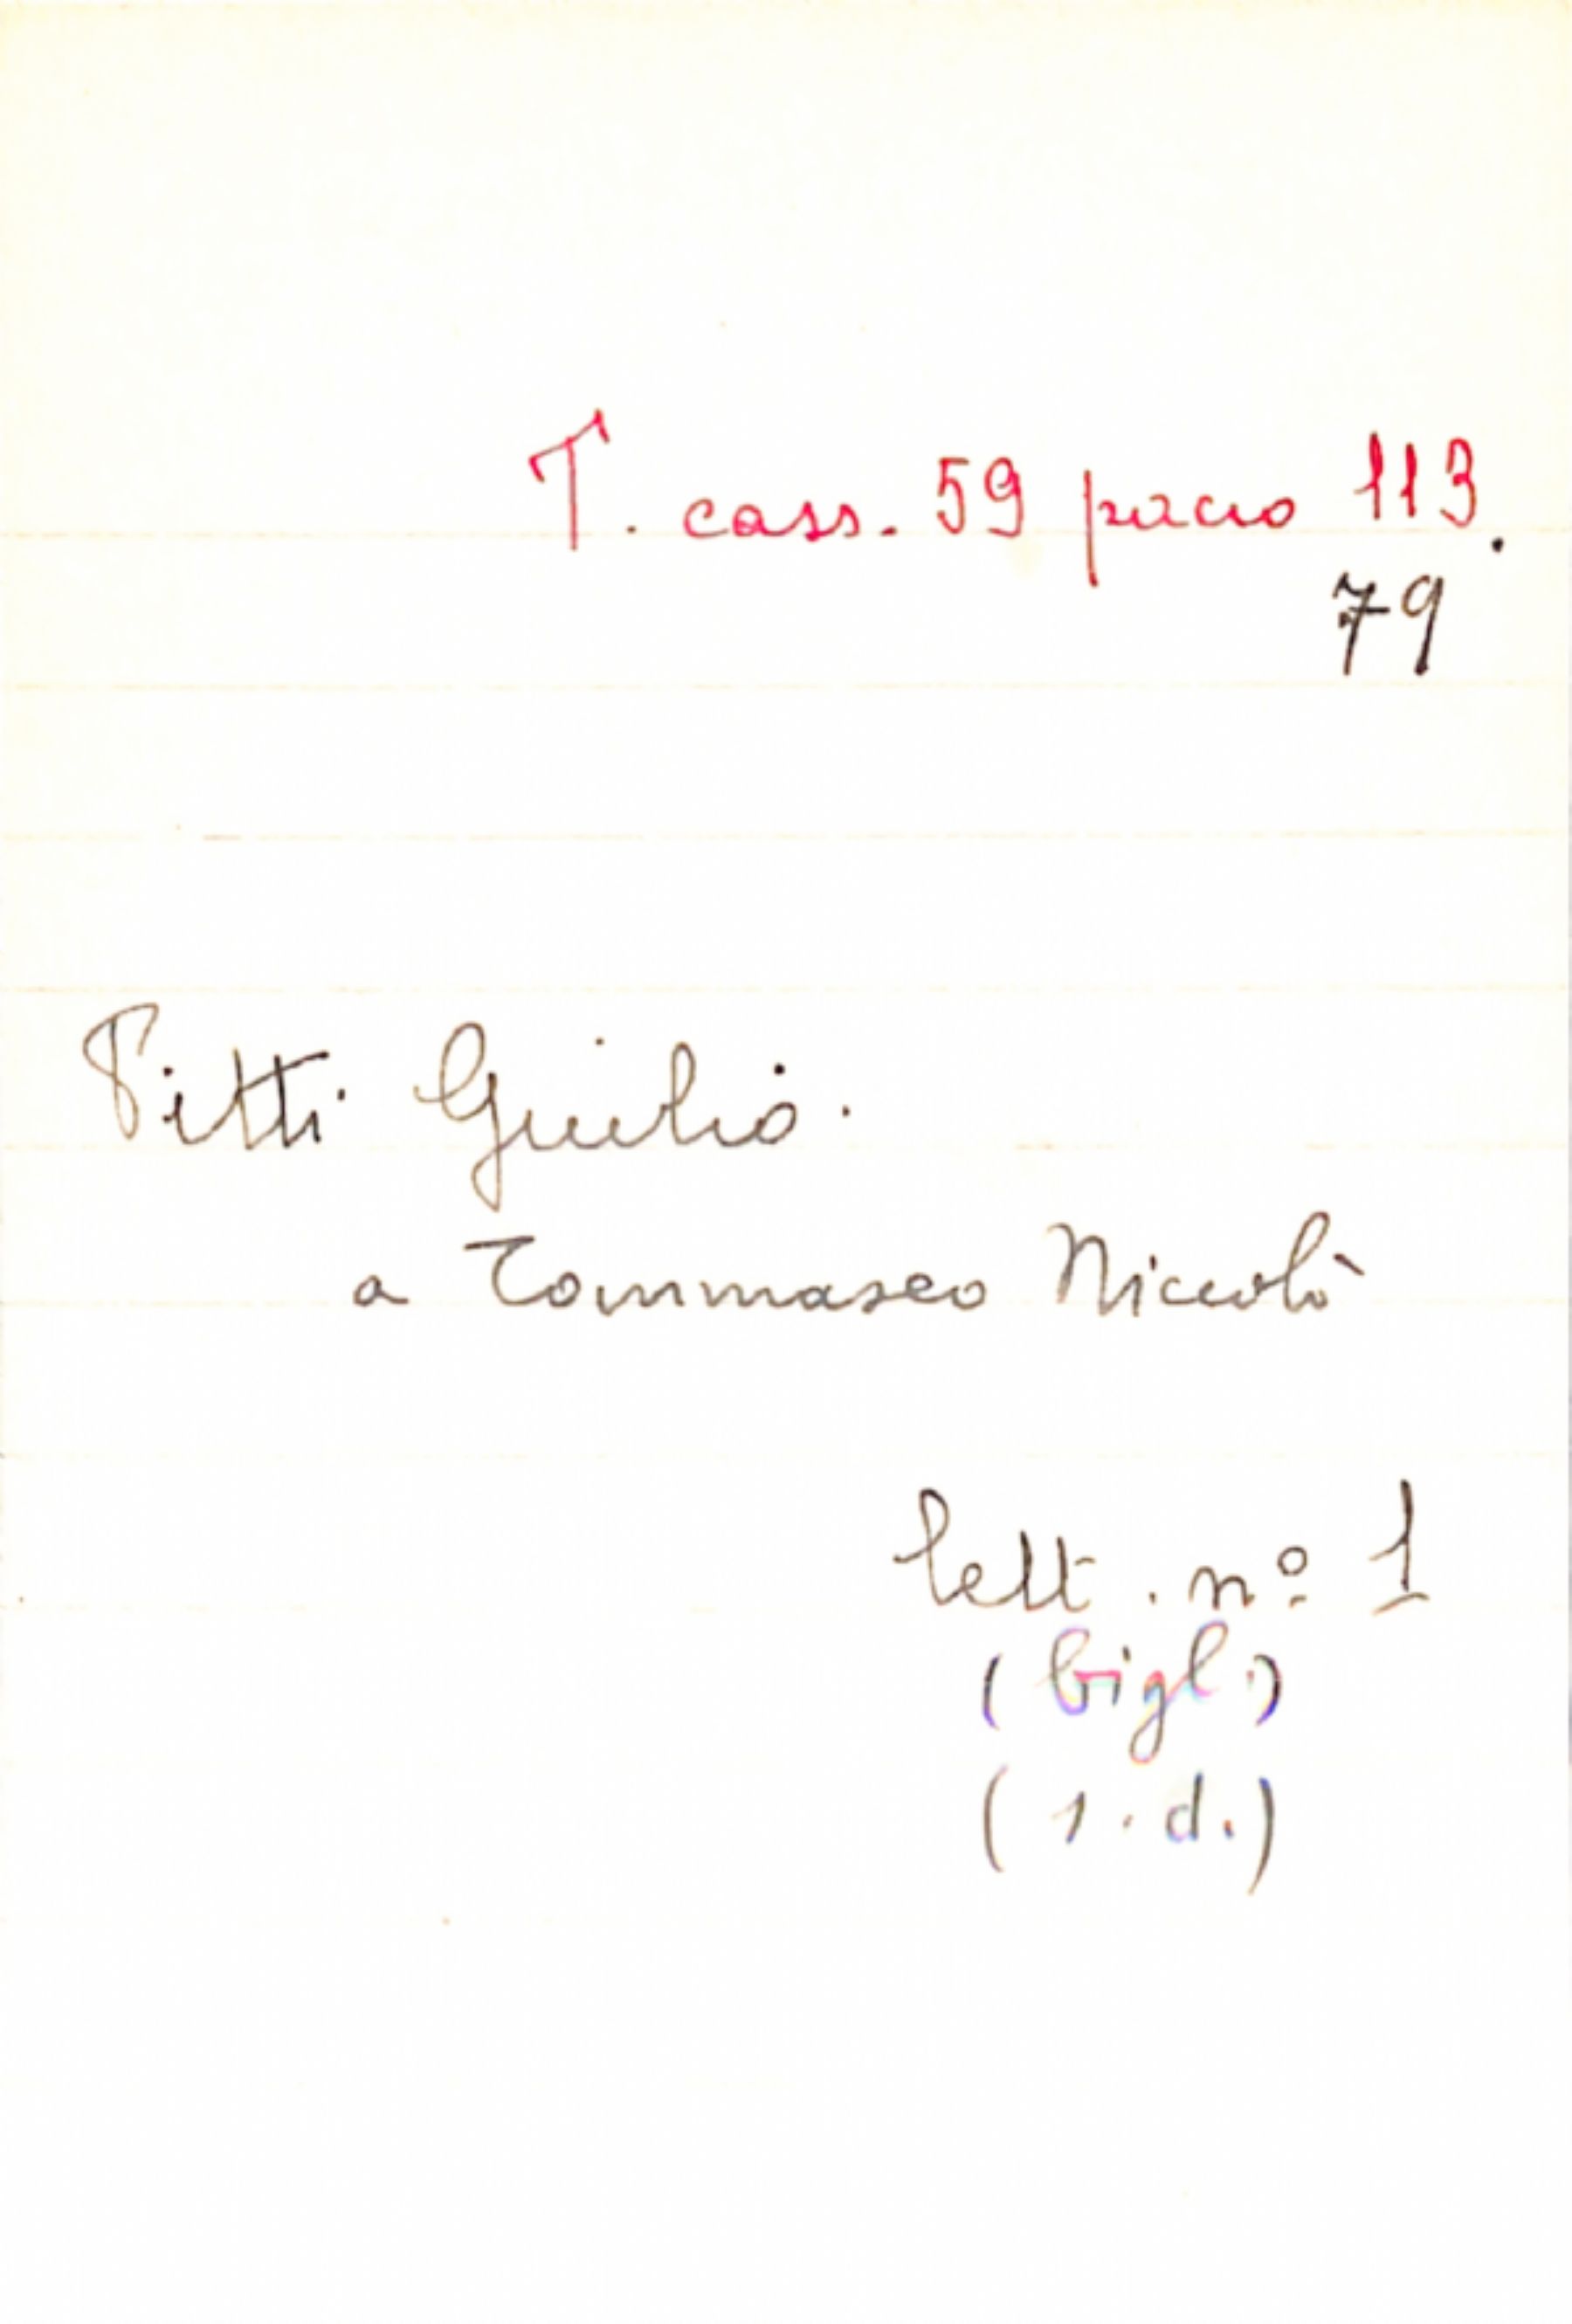 T. cass. 59 pacco 113.
79
Pitti Giulio.
a Tommaseo Niccolò
lett. nº 1
(bigl.)
(s.d.)